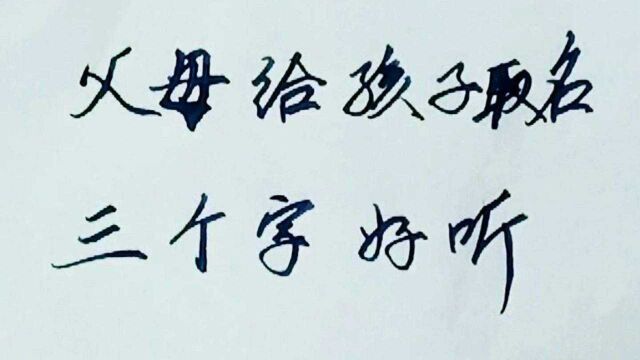 父母给孩子取名
三个字好听